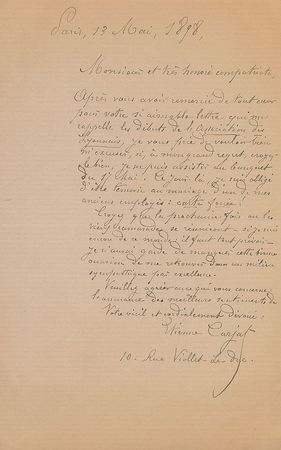 Paris, 13 Mai, 1898,
Monsieur et très honoré compatriote,
Après vous avoir remercié de tout cœur
pour votre si aimable lettre, qui me
rappelle les débuts de l'Association des
Lyonnais, je vous prie de vouloir bien
m'excuser, si, à mon grand regret, croyez-
le bien, je ne puis assister au banquet
du 17 Mai ! Ce jour-là, je suis obligé
d'être témoin au mariage d'un de mes
anciens employés : carte forcée !
Croyez que la prochaine fois où les
vieux camarades se réuniront – si je suis
encore de ce monde, il faut tout prévoir –
je n'aurai garde de manquer cette bonne
occasion de me retrouver dans un milieu
sympathique par excellence.
Veuillez agréer en ce qui vous concerne
l'assurance des meilleurs sentiments de
Votre vieil et cordialement dévoué.
Etienne Carjat
10 - Rue Viollet-le-Duc.